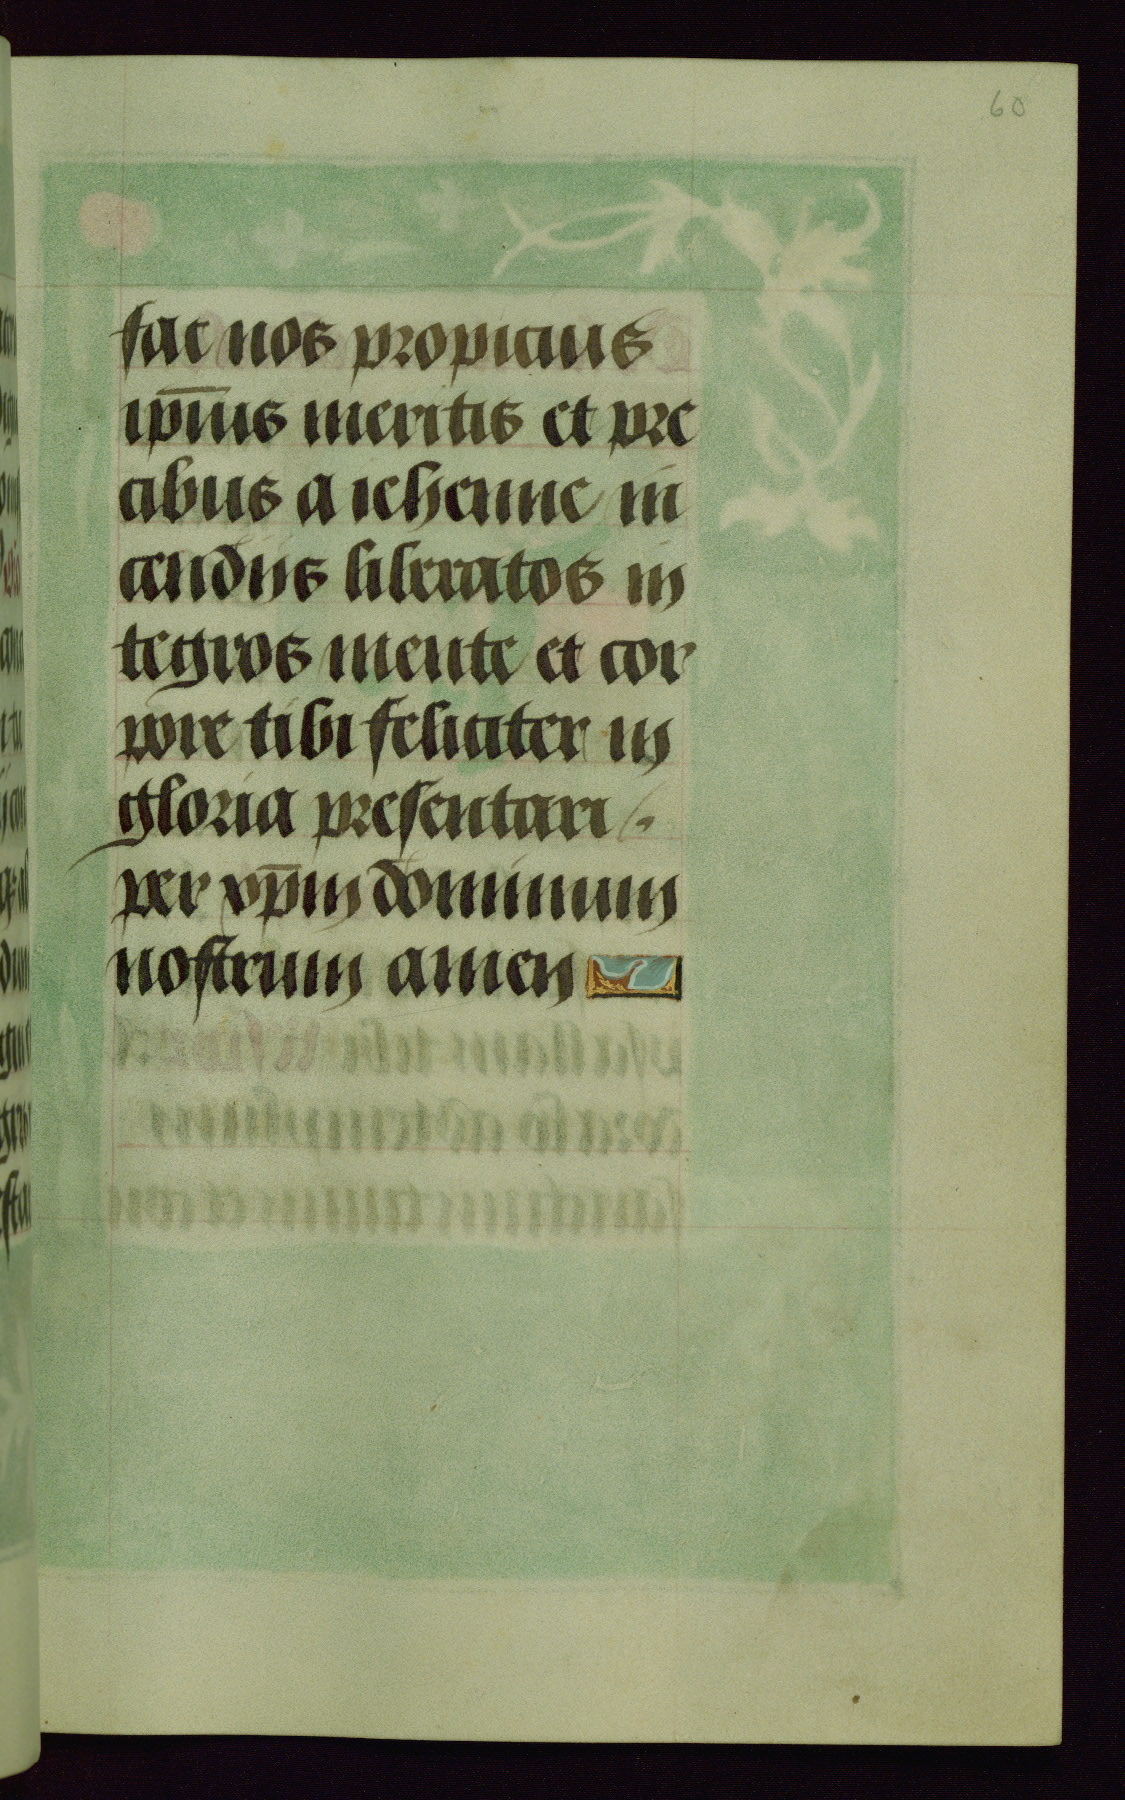 60
fac nos propicius
ip̅ius meritis et pre
cibus a iehenne in
cendiis liberatos in
tegros mente et cor
pore tibi feliciter in
gloria presentari /.
per xp̅m dominum
nostrum amen